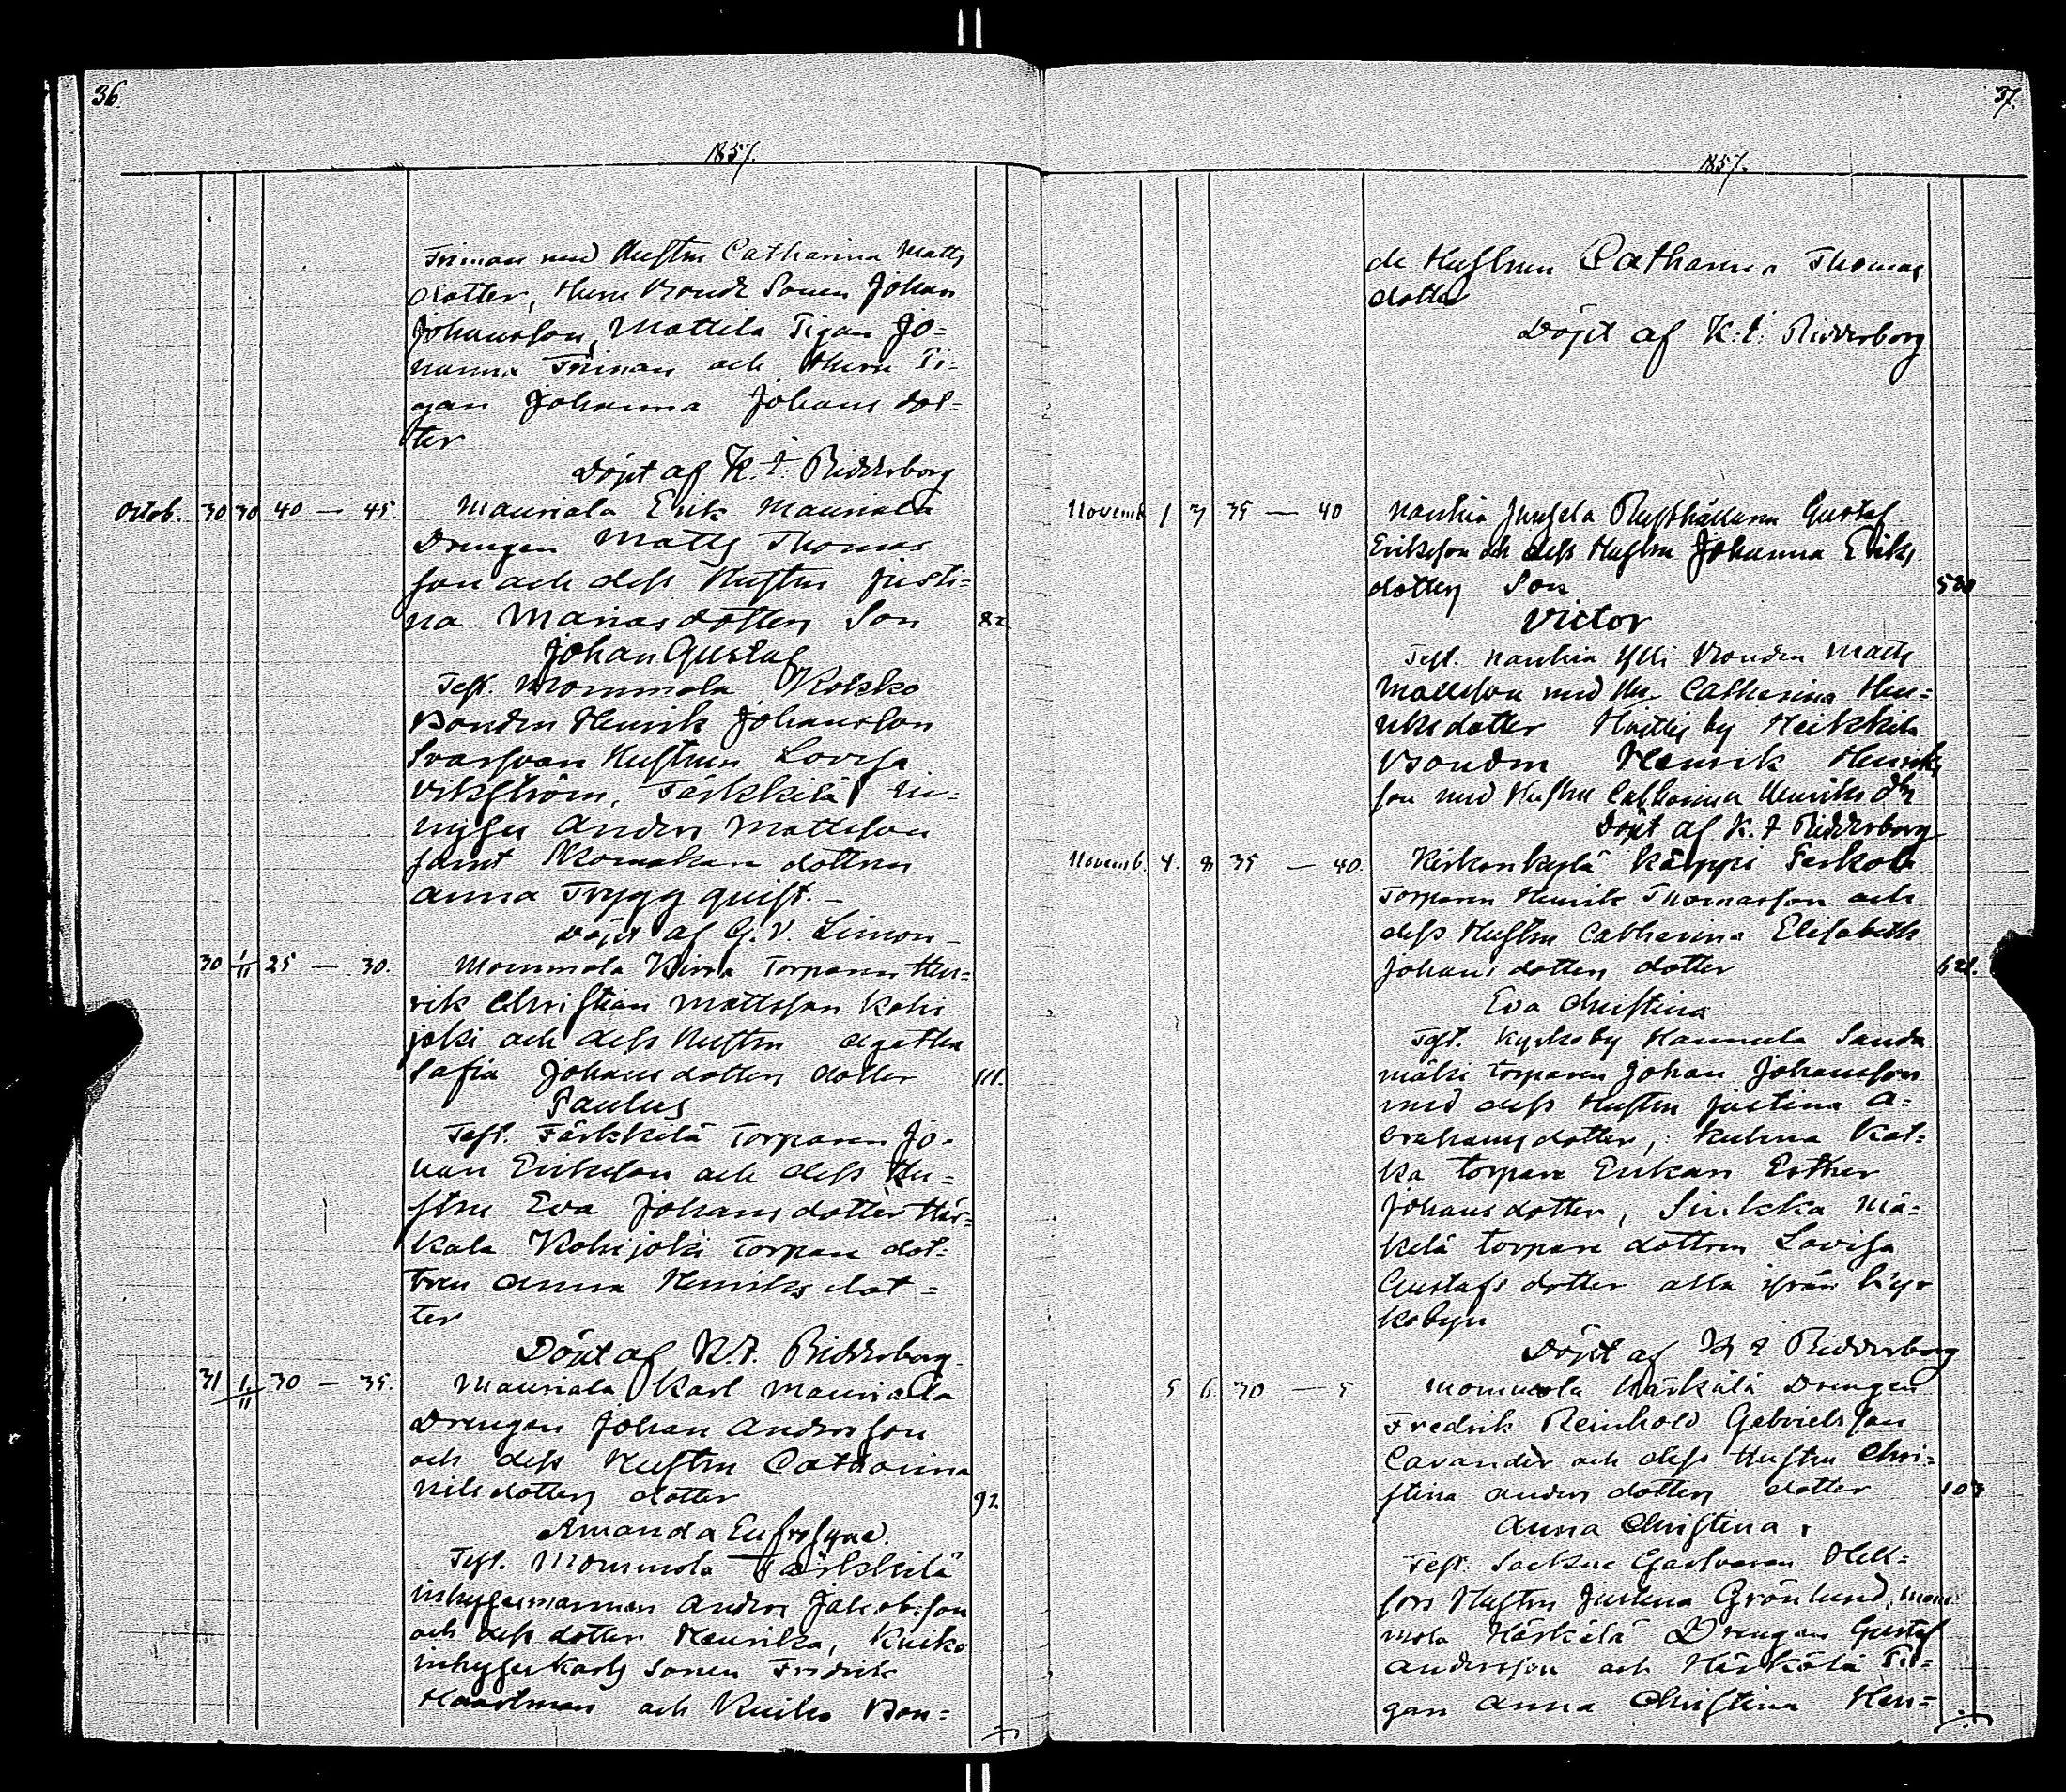 36.
1857.
Friman med Hustru Catharina Matts
dotter, Bonde Sonen Johan
Johansson, Mattila Pigan Jo=
hanna Friman och Pi=
gan Johanna Johans dot=
ter
Döpt af K. F. Ridderborg
Octob. 30 30 40 — 45. Mauriala Erik Mauriala
Drengen Matts Thomas
son och dess Hustru Justi=
na Mariasdotters Son 82
Johan Gustaf
Test. Mommola Kokko
Bonden Henrik Johansson
Hustrun Lovisa
Vikström, Färkkilä in=
hyses Anders Mattsson
samt dottren
Anna Tryggquist. —
Döpt af G. V. Limon
30 1/11 25 — 30. Mommola Torparen Hen=
rik Christian Mattsson Kohi
joki och dess Hustru Agatha
Safia Johans dotters dotter 111.
Paulus
Test. Färkkilä Torparen Jo=
han Eriksson och dess Hu=
stru Eva Johans dotter Här=
kälä Kohijoki Torpare dot=
tren Anna Henriks dot=
ter
Döpt af K. F. Ridderborg.
31 1/11 30 — 35. Mauriala Karl Mauriala
Drengen Johan Andersson
och dess Hustru Catharina
Nilsdotters dotter 92
Amanda Eufrosyne.
Test. Mommola Färkkilä
inhysesmannen Anders Jakobsson
och dess dotter Henrika, Kuiko
inhyses Karls Sonen Fredrik
och Kuiko Bon=
37.
1857.
de Hustrun Catharina Thomas
dotter
Döpt af K. F. Ridderborg
Novemb. 1 3 35 — 40 Nauhia Junsela Rusthållaren Gustaf
Eriksson och dess Hustru Johanna Eriks
dotters Son 520
Victor
Test. Nauhia Ylli Bonden Matts
Mattsson med Hu. Catharina Hen=
riksdotter by Heikkilä
Bonden Henrik Henriks
son med Hustru Catharina Henriks dtr
Döpt af K. F Ridderborg
Novemb. 4. 8 35 — 40. Kirkonkylä Käppi Perkola
Torparen Henrik Thomasson och
dess Hustru Catharina Elisabeth
Johans dotters dotter 621.
Eva Christina
Test. Kyrkoby Hannula Sanda
mäki torparen Johan Johansson
med dess Hustru Justina A=
brahams dotter, Kuhna Kat=
ka torpare Enkan Esther
Johans dotter, Sirkka Mä=
kelä torpare dottren Lovisa
Gustafs dotter alla ifrån Kyr
kobyn
Döpt af K F Ridderborg
5 6 30 — 5 Mommola Härkälä Drengen
Fredrik Reinhold Gabrielsson
Cavander och dess Hustru Chri=
stina Anders dotters dotter 103
Anna Christina.
Test. Garfvaren Hell=
fors Hustru Justina Grönlund, Mom
mola Härkälä Drengen Gustaf
Andersson och Härkälä Pi=
gan Anna Christina Hen=